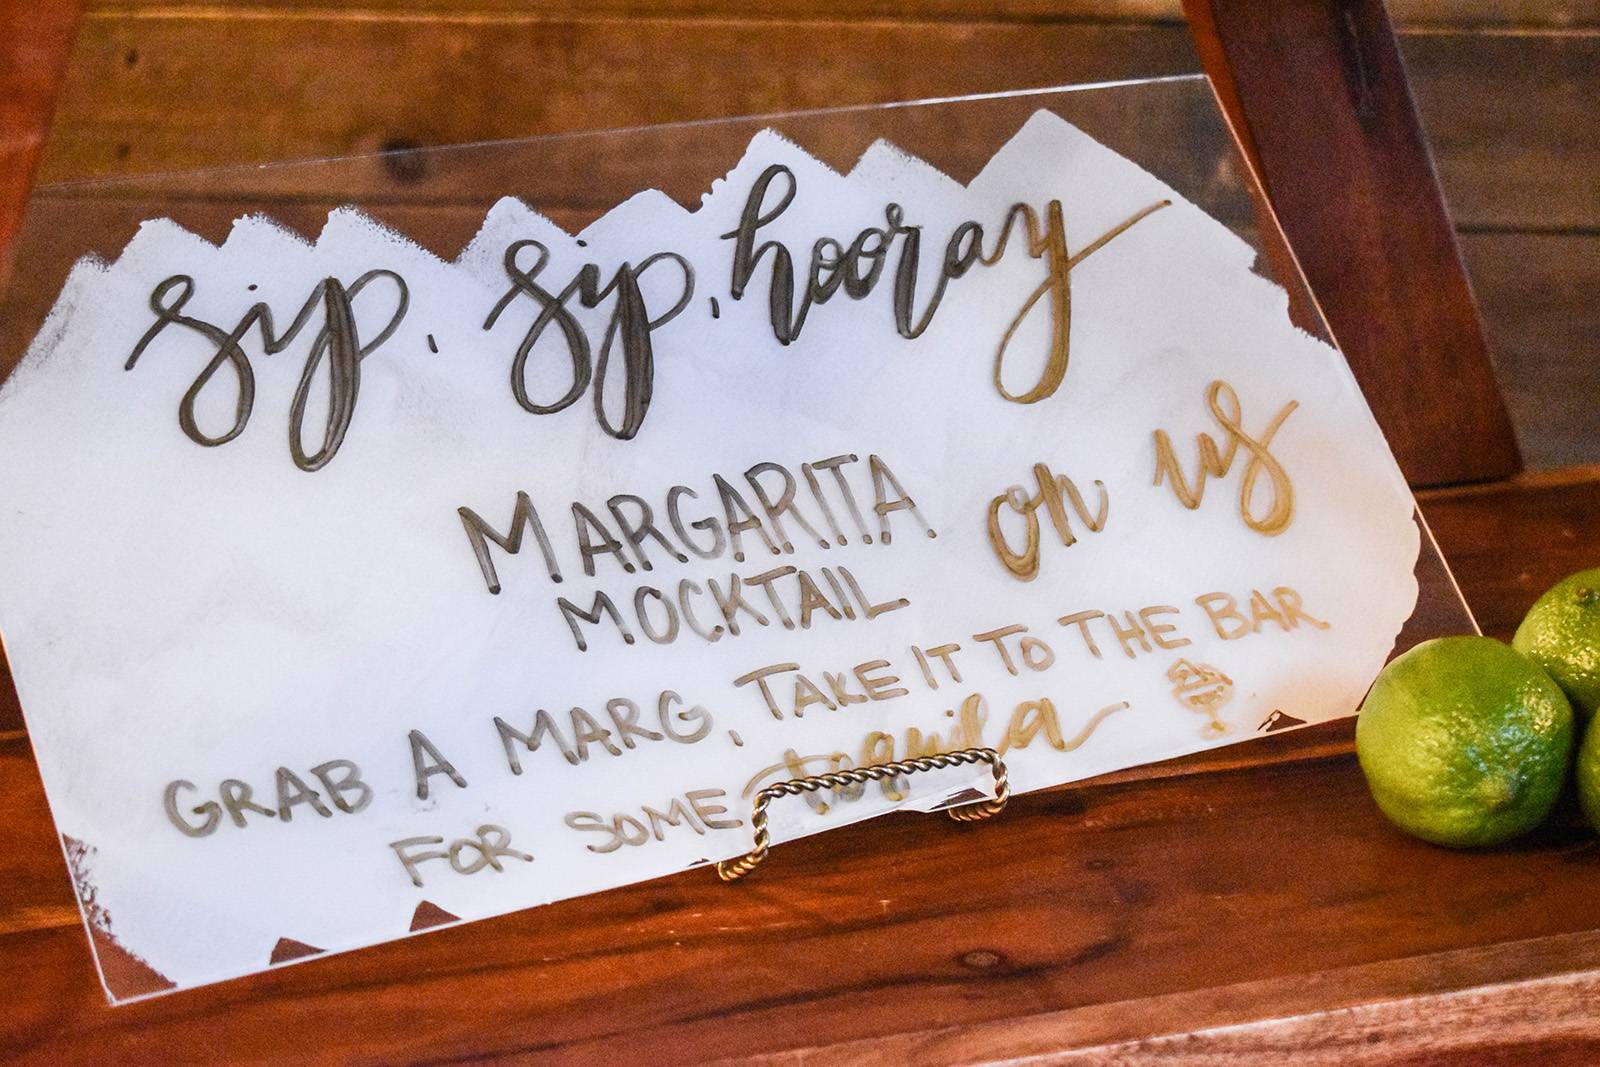 sip, sip, hooray
MARGARITA on us
MOCKTAIL
GRAB A MARG, TAKE IT TO THE BAR
FOR SOME tequila